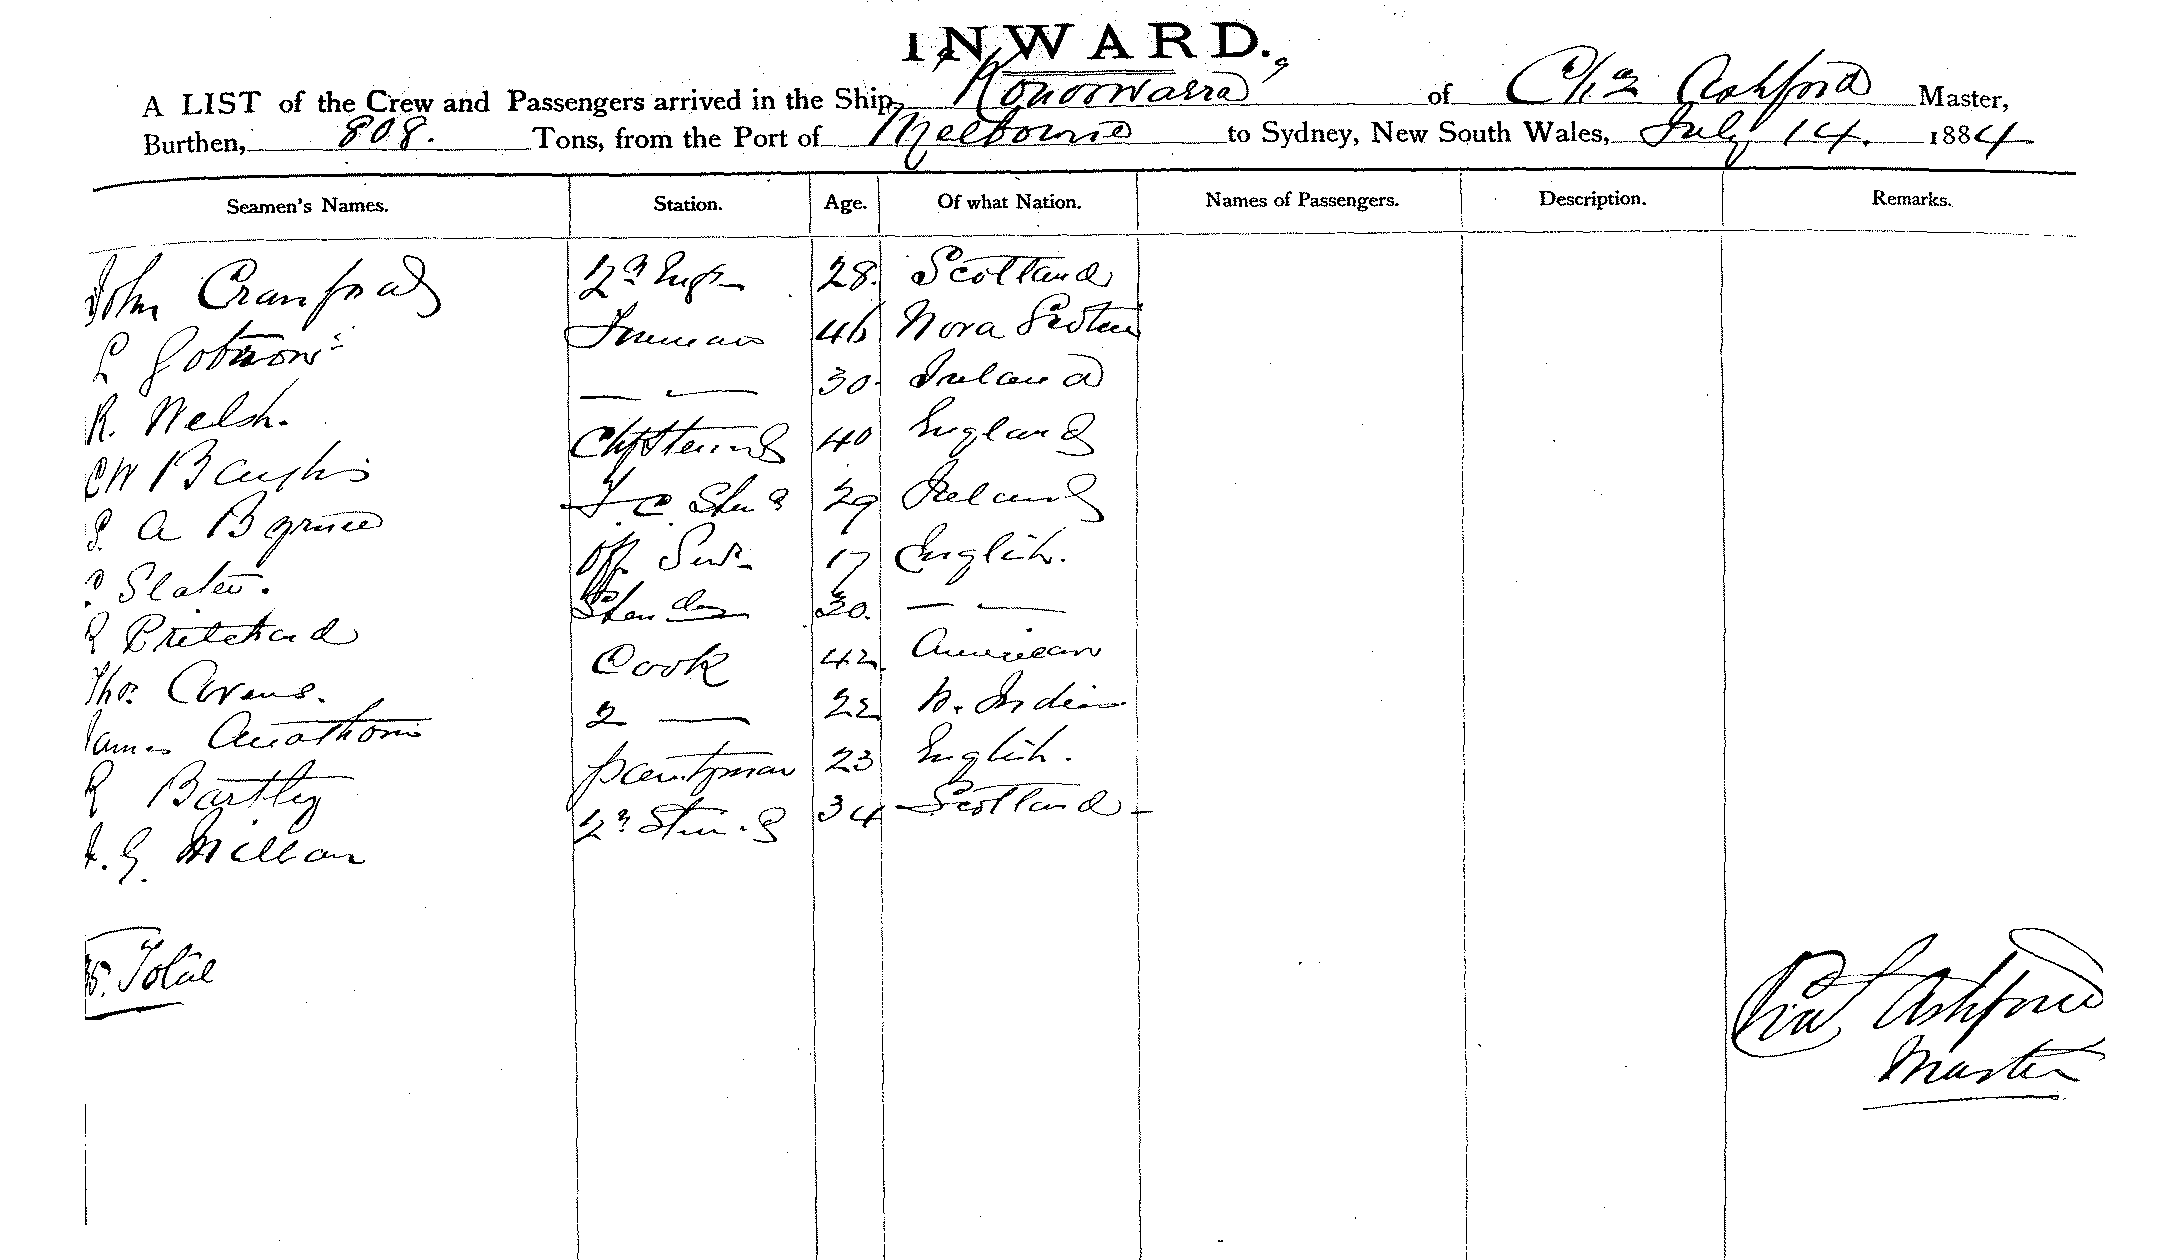 INWARD.
A LIST of the Crew and Passengers arrived in the Ship, "Konoowarra" of Chas Ashford Master,
Burthen, 808. Tons, from the Port of Melbourne to Sydney, New South Wales, July 14. 1884
Seamen's Names. Station. Age. Of what Nation. Names of Passengers. Description. Remarks.
John Crawford 2nd Engr 28. Scotland
L Fireman 46 Nova Scotia
R. Welsh. — — 30. Ireland
CW Chf Steward 40 England
A Byrne F. C. Stewd 29 Ireland
Slater. Off. Servt 17 English.
Pritchard 30. — —
Thos. Cook 42. American
James 2 — 22 W. Indies
R Bartley pantryman 23 English.
G. Millan 2nd Stewd 34 Scotland
Total
Chas Ashford
Master